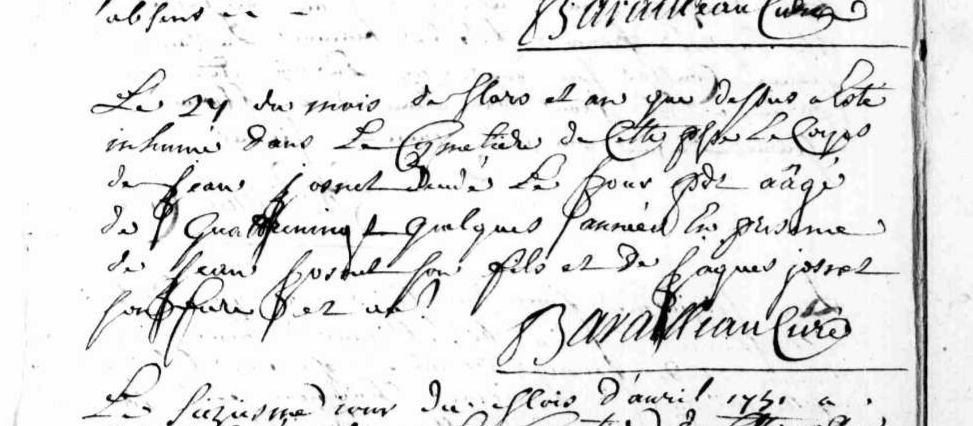 absens
Barailleau Curé
Le 27 du mois de Mars et an que dessus a esté
inhumé dans Le Cymetiere de Cette psse Le Corps
de Jean Josnet décédé Le jour pdt aâgé
de quattrevingt quelques années En presence
de Jean Josnet son fils et de Jaques josnet
son frere et
Baraillieau Curé
Le jour du Mois d'avril 1751 a